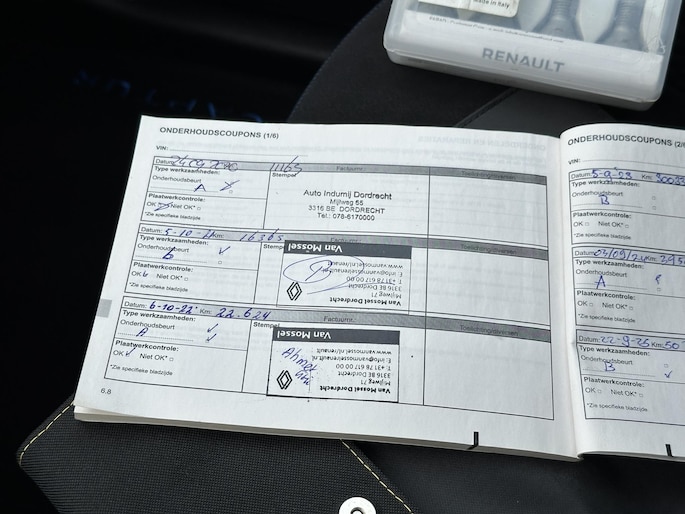 Made in Italy
RENAULT
ONDERHOUDSCOUPONS (1/6)
VIN:
Datum: Factuurnr.:
Type werkzaamheden: Stempel
Onderhoudsbeurt
A
Plaatwerkcontrole:
OK Niet OK*
*Zie specifieke bladzijde
Auto Indumij Dordrecht
Mijlweg 65
3316 BE DORDRECHT
Tel.: 078-6170000
Datum: 5-10-21 Km: 16365
Type werkzaamheden: Stempel
Onderhoudsbeurt
b
Plaatwerkcontrole:
OK Niet OK*
*Zie specifieke bladzijde
Van Mossel
www.vanmossel.nl/renault
E: info@vanmosselrenault.nl
T: +31 78 617 00 00
3316 BE Dordrecht
Mijlweg 71
Van Mossel Dordrecht
Datum: 6-10-22 Km: 22.624 Factuurnr.:
Type werkzaamheden: Stempel
Onderhoudsbeurt
A
Plaatwerkcontrole:
OK Niet OK*
*Zie specifieke bladzijde
Van Mossel
www.vanmossel.nl/renault
E: info@vanmosselrenault.nl
T: +31 78 617 00 00
3316 BE Dordrecht
Mijlweg 71
Van Mossel Dordrecht
6.8
ONDERHOUDSCOUPONS (2/6
VIN:
Datum: 5-9-23 Km:
Type werkzaamheden:
Onderhoudsbeurt
B
Plaatwerkcontrole:
OK Niet OK*
*Zie specifieke bladzijde
Datum: 03/09/24 Km: 395
Type werkzaamheden:
Onderhoudsbeurt
A
Plaatwerkcontrole:
OK Niet OK*
*Zie specifieke bladzijde
Datum: 22-9-25 Km: 50
Type werkzaamheden:
Onderhoudsbeurt
B
Plaatwerkcontrole:
OK Niet OK*
*Zie specifieke bladzijde